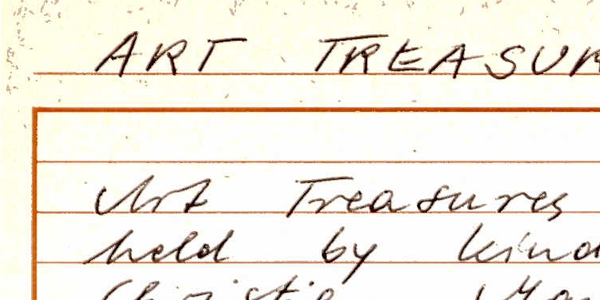 ART TREASUR
Art Treasures
held by kind